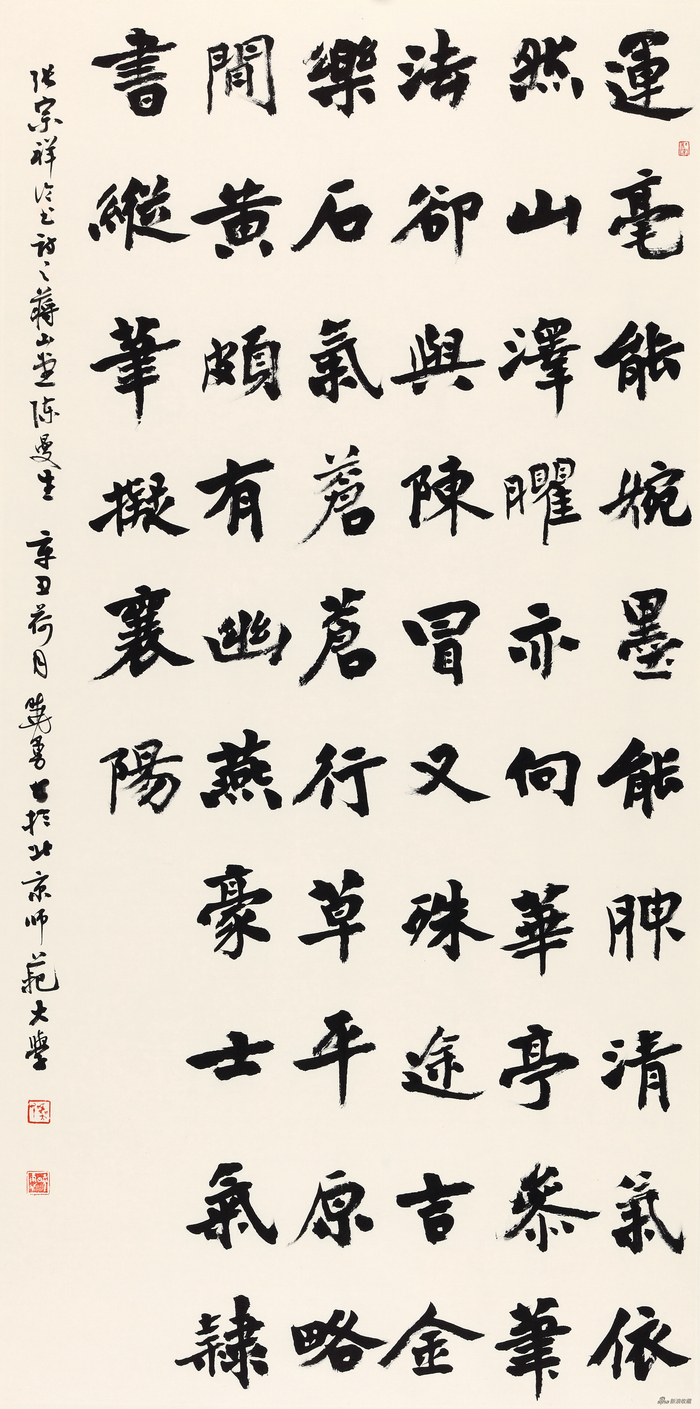 運毫能婉墨能腴清氣依
然山澤臞亦向華亭參筆
法卻與陳冒又殊途吉金
樂石氣蒼蒼行草平原略
間黄頗有幽燕豪士氣隸
書縱筆擬襄陽
張宗祥論書詩之蔣山堂陳曼生 辛丑荷月 曉勇書於北京師範大學
新浪收藏